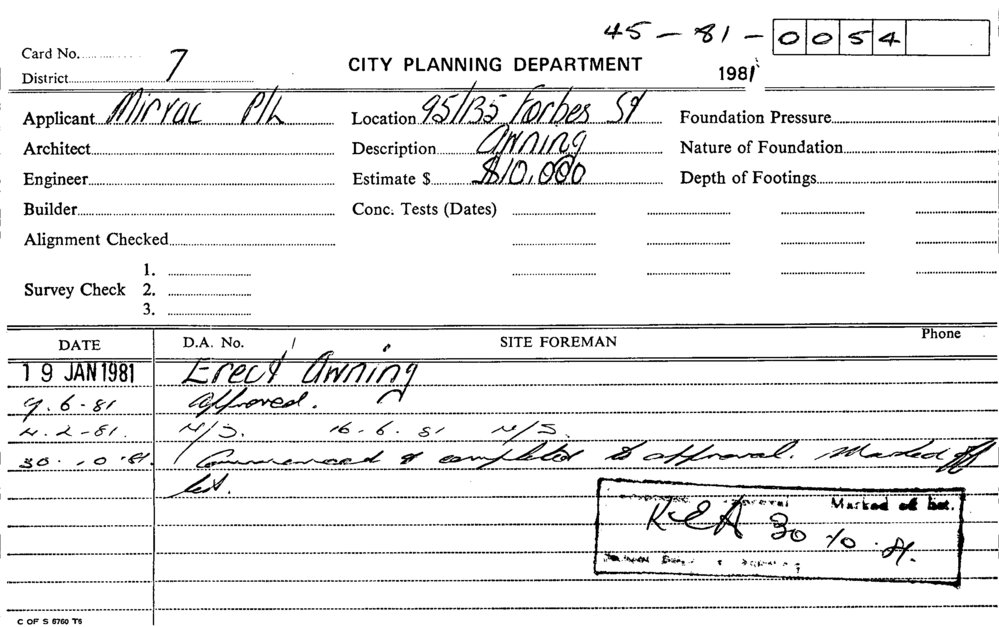 45 - 81 - 0054
Card No. 7
District
CITY PLANNING DEPARTMENT
1981
Applicant Mirvac P/L
Location 95/135 Forbes St
Foundation Pressure
Architect
Description Awning
Nature of Foundation
Engineer
Estimate $ $10,000
Depth of Footings
Builder
Conc. Tests (Dates)
Alignment Checked
1.
Survey Check 2.
3.
DATE D.A. No. SITE FOREMAN Phone
19 JAN 1981 Erect Awning
9.6-81 Approved.
4.2-81. N/S. 16.6.81 N/S.
30.10.81. Commenced & completed to approval. Marked off
list.
Marked off list.
30 10 81.
C OF S 6760 T6